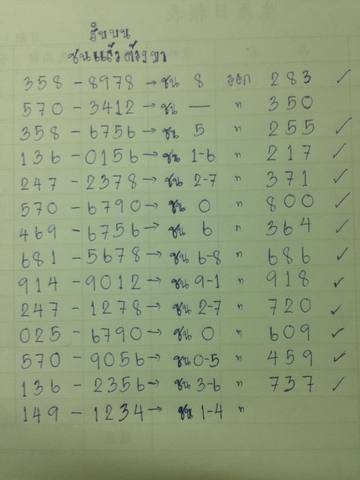 สิบบน
ชนแล้วต้องมา
358 - 8978 → ชน 8 ออก 283 ✓
570 - 3412 → ชน — " 350
358 - 6756 → ชน 5 " 255 ✓
136 - 0156 → ชน 1-6 " 217 ✓
247 - 2378 → ชน 2-7 " 371 ✓
570 - 6790 → ชน 0 " 800 ✓
469 - 6756 → ชน 6 " 364 ✓
681 - 5678 → ชน 6-8 " 686 ✓
914 - 9012 → ชน 9-1 " 918 ✓
247 - 1278 → ชน 2-7 " 720 ✓
025 - 6790 → ชน 0 " 609 ✓
570 - 9056 → ชน 0-5 " 459 ✓
136 - 2356 → ชน 3-6 " 737 ✓
149 - 1234 → ชน 1-4 "